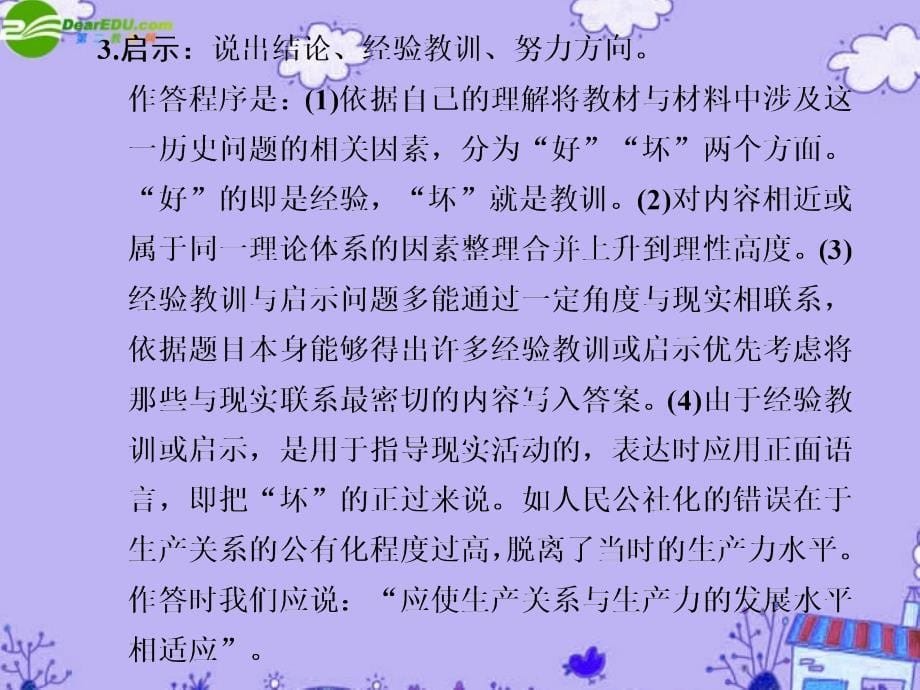 DearEDU.com
第二教育网
3.启示：说出结论、经验教训、努力方向。
作答程序是：(1)依据自己的理解将教材与材料中涉及这
一历史问题的相关因素，分为“好”“坏”两个方面。
“好”的即是经验，“坏”就是教训。(2)对内容相近或
属于同一理论体系的因素整理合并上升到理性高度。(3)
经验教训与启示问题多能通过一定角度与现实相联系，
依据题目本身能够得出许多经验教训或启示优先考虑将
那些与现实联系最密切的内容写入答案。(4)由于经验教
训或启示，是用于指导现实活动的，表达时应用正面语
言，即把“坏”的正过来说。如人民公社化的错误在于
生产关系的公有化程度过高，脱离了当时的生产力水平。
作答时我们应说：“应使生产关系与生产力的发展水平
相适应”。